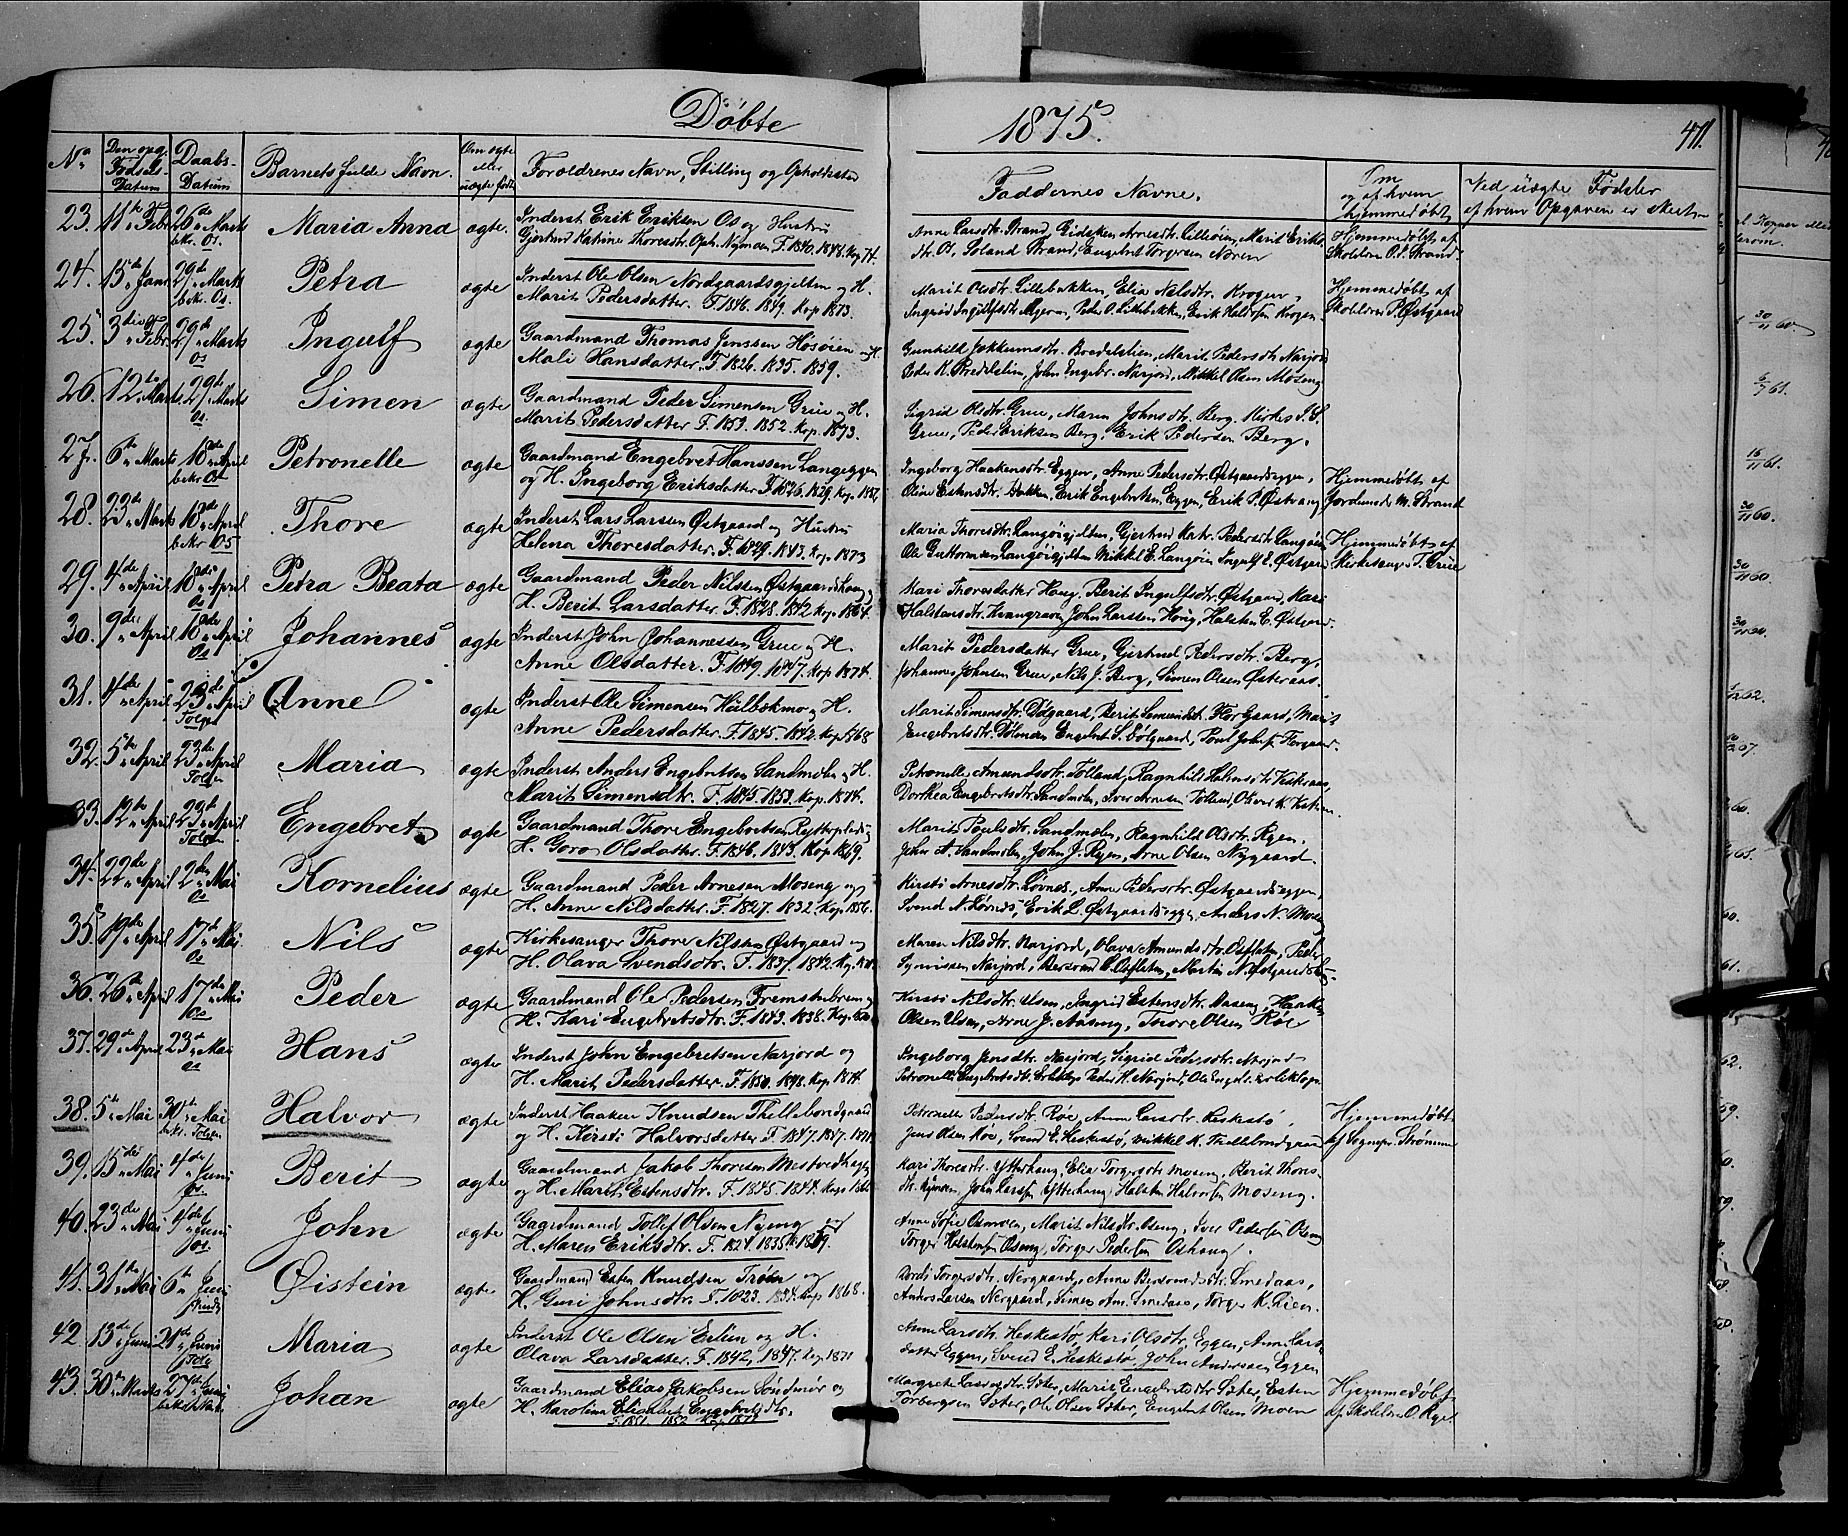 Døbte
1875.
471.
No
Den opg. Fødsels-Datum
Daabs-Datum
Barnets fulde Navn.
Om ægte eller uægte født
Forældrenes Navn, Stilling og Opholdssted
Faddernes Navne.
Om og af hvem hjemmedøbt
Ved uægte Fødsler af hvem Opgaven er skeet
23. 11te Febr 26de Marts bekr. Os. Maria Anna ægte. Inderst Erik Eriksen Os og Hustru
Gjertrud Katrine Thoresdtr. Oph. Nymoen F. 1840. 1848. Kop 74.
Anne Larsdtr. Strand, Eidsken Arnesdtr. Lilleøien, Marit Eriks-
dtr. Os, Joland Strand, Engebret Torgersen Noren
Hjemmedøbt af
Skolelær O. J. Strand.
24. 15de Janr 29de Marts bekr. Os. Petra ægte Inderst Ole Olsen Nordgaardsgjelten og H.
Marit Pedersdatter. F. 1846. 1849. Kop 1873.
Marit Olsdtr. Lillebakken, Elia Nilsdtr. Krogen,
Ingrid Ingulfsdtr. Myren, Peder O. Lillebakken, Erik Halvorsen Krogen
Hjemmedøbt af
Skolelærer P. Østgaard
25. 3die Febr 29de Marts Os Ingulf ægte Gaardmand Thomas Jenssen Hosøien og H.
Mali Hansdatter. F. 1826. 1835. 1859.
Gunhild Jokkumsdtr. Bredalslien, Marit Pedersdtr Narjord
Peder K. Bredalslien, John Engebr. Narjord, Mikkel Olsen Moseng
26. 12te Marts 29de Marts Os. Simen ægte Gaardmand Peder Simensen Grue og H.
Marit Pedersdatter. F. 1853. 1852. Kop. 1873.
Sigrid Olsdtr. Grue, Maren Johnsdtr. Berg,
Grue, Peder Eriksen Berg, Erik Pedersen Berg.
27. 6te Marts 18de April bekr Os Petronelle ægte Gaardmand Engebret Hanssen Langeggen
og H. Ingeborg Eriksdatter F. 1826. 1829. Kop. 1852.
Ingeborg Haakensdtr. Eggen, Anne Pedersdtr. Østgaardseggen,
Oline Estensdtr. Bakken, Erik Engebretsen Eggen, Erik P. Østvang
Hjemmedøbt af
Jordemoder M. Strand
28. 23de Marts 18de April bekr Os Thore ægte Inderst Lars Larssen Østgaard og Hustru
Helena Thoresdatter. F. 1849. 1843. Kop. 1873
Maria Thoresdtr. Langøigjelten, Gjertrud Katr. Pedersdtr. Langøien
Ole Guttormsen Langøigjelten Mikkel E. Langøien Ingulf E. Østgaard
Hjemmedøbt af
Kirkesanger T. Grue
29. 4de April 18de April Os Petra Beata ægte Gaardmand Peder Nilssen Østgaardshoug og
H. Berit Larsdatter. F. 1828. 1842 Kop. 1864.
Mari Thoresdatter Houg, Berit Ingulfsdtr. Østgaard, Mari
Halstensdtr. Kvangraven John Larssen Houg, Halsten E. Østgaard.
30. 9de April 18de April Os Johannes ægte Inderst John Johannessen Grue og H.
Anne Olsdatter. F. 1849. 1847. Kop. 1874.
Marit Pedersdatter Grue, Gjertrud Pedersdtr. Berg,
Johannes Johnsen Grue, Nils J. Berg, Simen Olsen Østeraas.
31. 4de April 23de April Tolgen Anne ægte Inderst Ole Simensen Hulbækmo og H.
Anne Pedersdatter. F. 1845. 1842. Kop. 1868
Marit Simensdtr. Dølgaard, Berit Simensdtr. Florgaard, Marit
Engebretsdtr. Tolmoen Engebret S. Dølgaard, Poul Johnsen Florgaard.
32. 5te April 23de April Tolgen Maria ægte Inderst Anders Engebretsen Sandmoelen og H.
Marit Simensdtr. F. 1845. 1853. Kop. 1874.
Petronelle Amundsdtr. Tolland, Ragnhild
Dorthea Engebretsdtr. Sandmoelen, Iver Arnesen Tolland
33. 12te April 23de April Tolgen Engebret ægte Gaardmand Thore Engebretsen Rytterplads og
H. Goro Olsdatter. F. 1846. 1843. Kop 1869.
Marit Poulsdtr. Sandmoelen, Ragnhild Olsdtr. Ryen,
John A. Sandmoelen, John J. Ryen, Arne Olsen Nygaard.
34. 22de April 2den Mai Os Kornelius ægte Gaardmand Peder Arnesen Moseng og
H. Anne Nilsdatter. F. 1827. 1832. Kop. 1856.
Kirsti Arnesdtr. Løvnes, Anne Pedersdtr. Østgaardseggen,
Svend N. Løvnes, Erik L. Østgaardseggen Anders N. Moseng
35. 19de April 17de Mai Os Nils ægte Kirkesanger Thore Nilsen Østgaard og
H. Olava Svendsdtr. F. 1837. 1842.
Maren Nilsdtr. Narjord, Olava Amundsdtr. Osfloten, Peder
Narjord, Bersvend Osfloten, Martin N. Østgaardshoug
36. 26de April 17de Mai Os Peder ægte Gaardmand Ole Pedersen Fremstubroen og
H. Kari Engebretsdtr. F. 1843. 1838.
Kirsti Nilsdtr. Ulsen, Ingrid Estensdtr. Aaseng, Haaken
Olsen Ulsen, Arne J. Aaseng, Thore Olsen Røe
37. 29de April 23de Mai Os Hans ægte Inderst John Engebretsen Narjord og
H. Marit Pedersdatter. F. 1850. 1848. Kop. 1874.
Ingeborg Jensdtr. Narjord, Sigrid Pedersdtr. Narjord
Petronelle Engebretsdtr. Erlikleps Peder H. Narjord, Ole Erlikleps.
38. 5te Mai 30te Mai bekr. Tolgen Halvor ægte Inderst Haaken Knudsen Thellebondgaard
og H. Kirsti Halvorsdatter F. 1847. 1847.
Petronelle Pedersdtr. Røe, Anne Larsdtr. Heskestø,
Jens Olsen Moe, Svend E. Heskestø, Mikkel K. Thellebondgaard
Hjemmedøbt
af Sognepr. Strømme
39. 15de Mai 4de Juni Os. Berit ægte Gaardmand Jakob Thoresen Mestvedhagen
og H. Marit Estensdtr. F. 1845. 1844.
Mari Thoresdtr. Ytterhaug, Elia Torgersdtr Moseng, Berit Thores-
dtr. Nymoen, John Larssen Ytterhaug Halsten Halvorsen Moseng.
40. 23de Mai 4de Juni Os. John ægte Gaardmand Tollef Olsen Nyeng og
H. Maren Eriksdtr. F. 1824. 1835. 1869.
Anne Sofie Osmoen, Marit Nilsdtr. Oseng, Iver Pedersen Oseng
Torger Halstensen Oseng, Torger Pedersen Oshaug.
41. 31te Mai 6te Juni Øistein ægte Gaardmand Esten Knudsen Trøen og
H. Guri Johnsdtr. F. 1823. 1834. Kop 1868.
Bordi Torgersdtr. Nergaard, Anne Bersvendsdtr. Smedaas,
Anders Larsen Nergaard, Simen Am. Smedaas, Torger K. Lien.
42 13de Juni 21de Juni Tolg. Maria ægte Inderst Ole Olsen Erlien og H.
Olava Larsdatter. F. 1842, 1847. Kop 1871
Anne Larsdtr. Heskestø, Kari Olsdtr. Eggen, Anne Lars-
datter Eggen, Svend E. Heskestø, John Andreasen Eggen
43. 30te Marts 27de Juni bekr. Johan ægte Gaardmand Elias Jakobsen Søndmør og
H. Karolina Elisabet Engebretsdtr.
F. 1851. 1852 Kop. 1873
Margrete Larsdtr. Sæter, Marit Engebretsdtr. Sæter, Esten
Torbergsen Sæter, Ole Olsen Sæter, Engebret Olsen Moen
Hjemmedøbt
af Skolelær O. Ryes